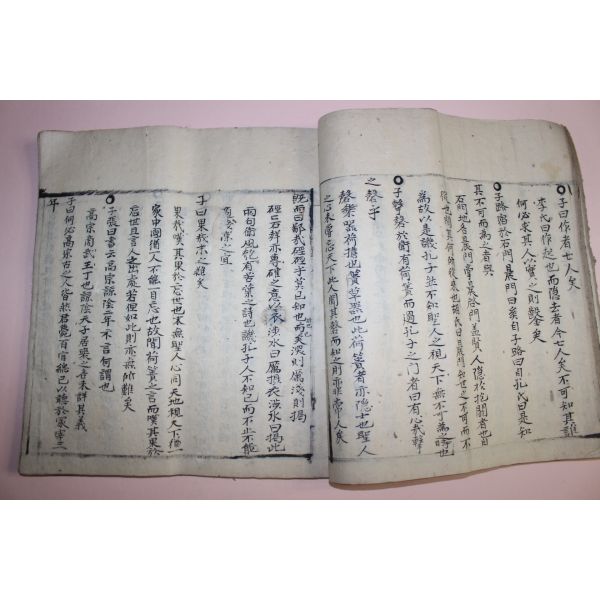 子曰作者七人矣
李氏曰作起也而隱去者今七人矣不可知其誰
何必求其人以實之則鑿矣
子路宿於石門晨門曰奚自子路曰自孔氏曰是知
其不可而爲之者與
石門地名晨門掌晨啓門盖賢人隱於抱關者也自
從也問其何所從來也胡氏曰晨門知世之不可而不
爲故以是譏孔子然不知聖人之視天下無不可爲之時也
子擊磬於衛有荷蕢而過孔子之門者曰有心哉擊
磬乎
磬樂器荷擔也蕢草器也此荷蕢者亦隱士也聖人
之心未嘗忘天下此人聞其磬而知之則亦非常人矣
旣而曰鄙哉硜硜乎莫己知也斯已而已矣深則厲淺則揭
硜硜石聲亦專確之意以衣涉水曰厲攝衣涉水曰揭此
兩句衛風匏有苦葉之詩也譏孔子人不知己而不止不能
適淺深之宜
子曰果哉末之難矣
果哉嘆其果於忘世也末無也聖人心同天地視天下猶一
家中國猶一人不能一日忘也故聞荷蕢之言而嘆其果於
忘世且言人之出處若但如此則亦無所難矣
子張曰書云高宗諒陰三年不言何謂也
高宗商武王丁也諒陰天子居喪之名未詳其義
子曰何必高宗古之人皆然君薨百官總己以聽於冢宰三
年